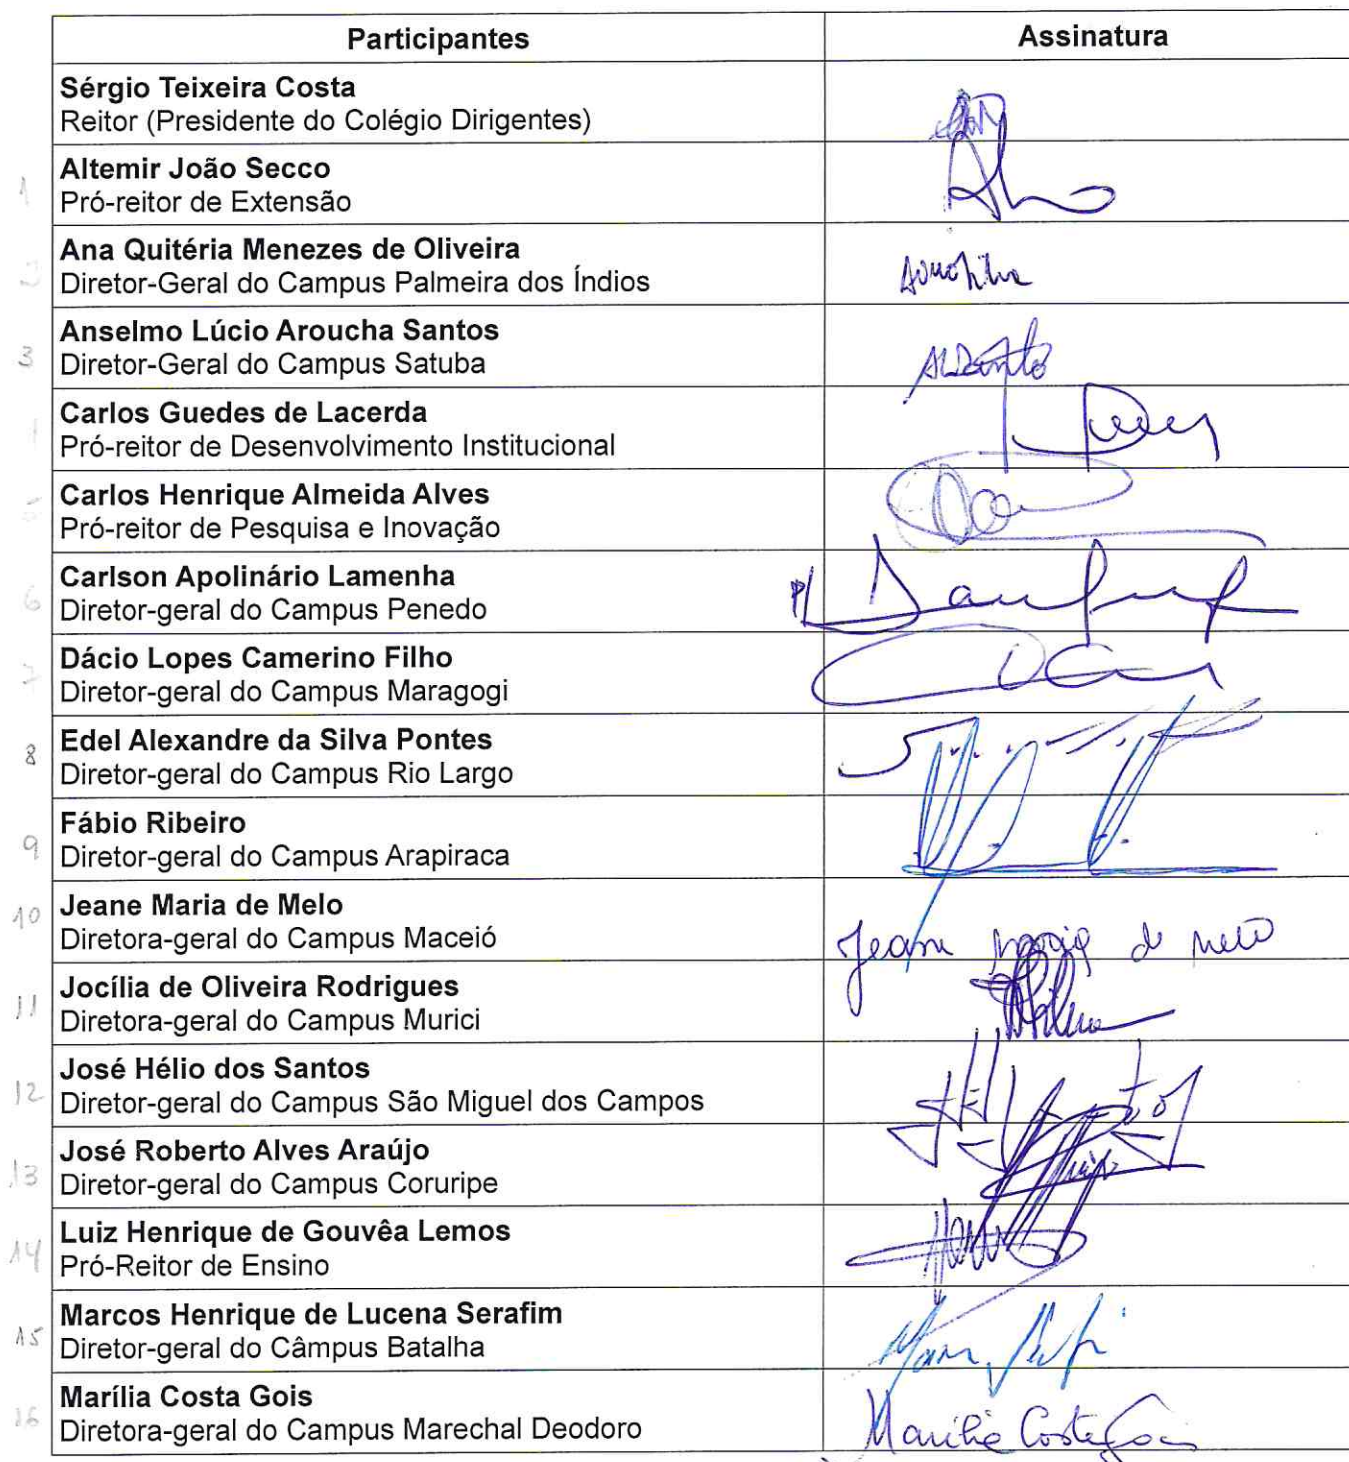 Participantes Assinatura
Sérgio Teixeira Costa
Reitor (Presidente do Colégio Dirigentes)
1 Altemir João Secco
Pró-reitor de Extensão
2 Ana Quitéria Menezes de Oliveira
Diretor-Geral do Campus Palmeira dos Índios
3 Anselmo Lúcio Aroucha Santos
Diretor-Geral do Campus Satuba
Carlos Guedes de Lacerda
Pró-reitor de Desenvolvimento Institucional
5 Carlos Henrique Almeida Alves
Pró-reitor de Pesquisa e Inovação
6 Carlson Apolinário Lamenha
Diretor-geral do Campus Penedo
7 Dácio Lopes Camerino Filho
Diretor-geral do Campus Maragogi
8 Edel Alexandre da Silva Pontes
Diretor-geral do Campus Rio Largo
9 Fábio Ribeiro
Diretor-geral do Campus Arapiraca
10 Jeane Maria de Melo
Diretora-geral do Campus Maceió Jeane Maria de Melo
11 Jocília de Oliveira Rodrigues
Diretora-geral do Campus Murici
12 José Hélio dos Santos
Diretor-geral do Campus São Miguel dos Campos
13 José Roberto Alves Araújo
Diretor-geral do Campus Coruripe
14 Luiz Henrique de Gouvêa Lemos
Pró-Reitor de Ensino
15 Marcos Henrique de Lucena Serafim
Diretor-geral do Câmpus Batalha
16 Marília Costa Gois
Diretora-geral do Campus Marechal Deodoro Marília Costa Gois